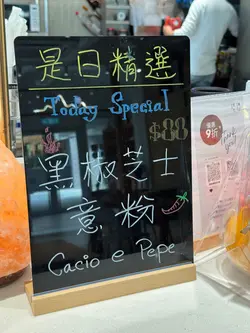 是日精選
Today Special
$88
黑椒芝士
意粉
Cacio e Pepe
9折